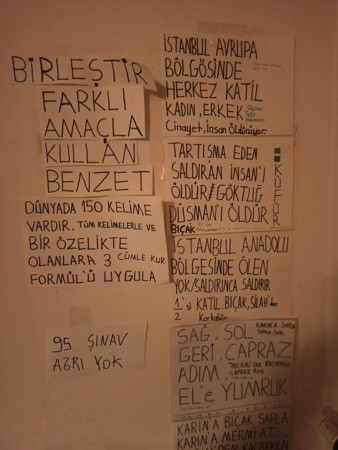 BİRLEŞTİR
FARKLI
AMAÇLA
KULLAN
BENZET
DÜNYADA 150 KELİME
VARDIR. TÜM KELİMELERLE VE
BİR ÖZELİKTE
OLANLARA 3 CÜMLE KUR
FORMÜL'Ü UYGULA
95 SINAV
AĞRI YOK
İSTANBUL AVRUPA
BÖLGÖSİNDE
HERKEZ KATİL
KADIN, ERKEK
Cinayet, İnsan Öldürüyor.
TARTIŞMA EDEN
SALDIRAN İNSAN'I
ÖLDÜR/GÖKTUĞ
DÜŞMAN'I ÖLDÜR
BIÇAK
KÜFÜR
İSTANBUL ANADOLU
BÖLGESİNDE ÖLEN
YOK/SALDIRINCA SALDIRIR
1.'si KATİL. BIÇAK, SİLAH'dan
2 Korkabilir
SAĞ, SOL
GERİ, ÇAPRAZ
ADIM,
EL'e YUMRUK
KARIN'A BIÇAK SAPLA
KARIN'A MERMİ AT
KAÇARKEN